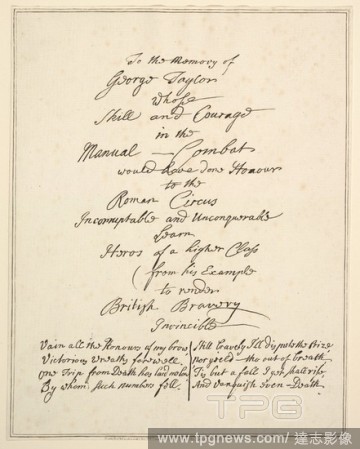 To the Memory of
George Taylor
whose
Skill and Courage
in the
Manual — Combat
would have done Honour
to the
Roman Circus
Incorruptable and Unconquerable
Learn
Heros of a higher Class
(from his Example
to render
British Bravery
Invincible
Vain all the Honours of my brow
Victorious Wreaths farewell
One Trip from Death has laid me low
By whom such numbers fell.
Still bravely Ill dispute the Prize
nor yield - tho out of breath
Tis but a fall I yet shall rise
And vanquish even - Death
TPG
www.tpgnews.com/達志影像